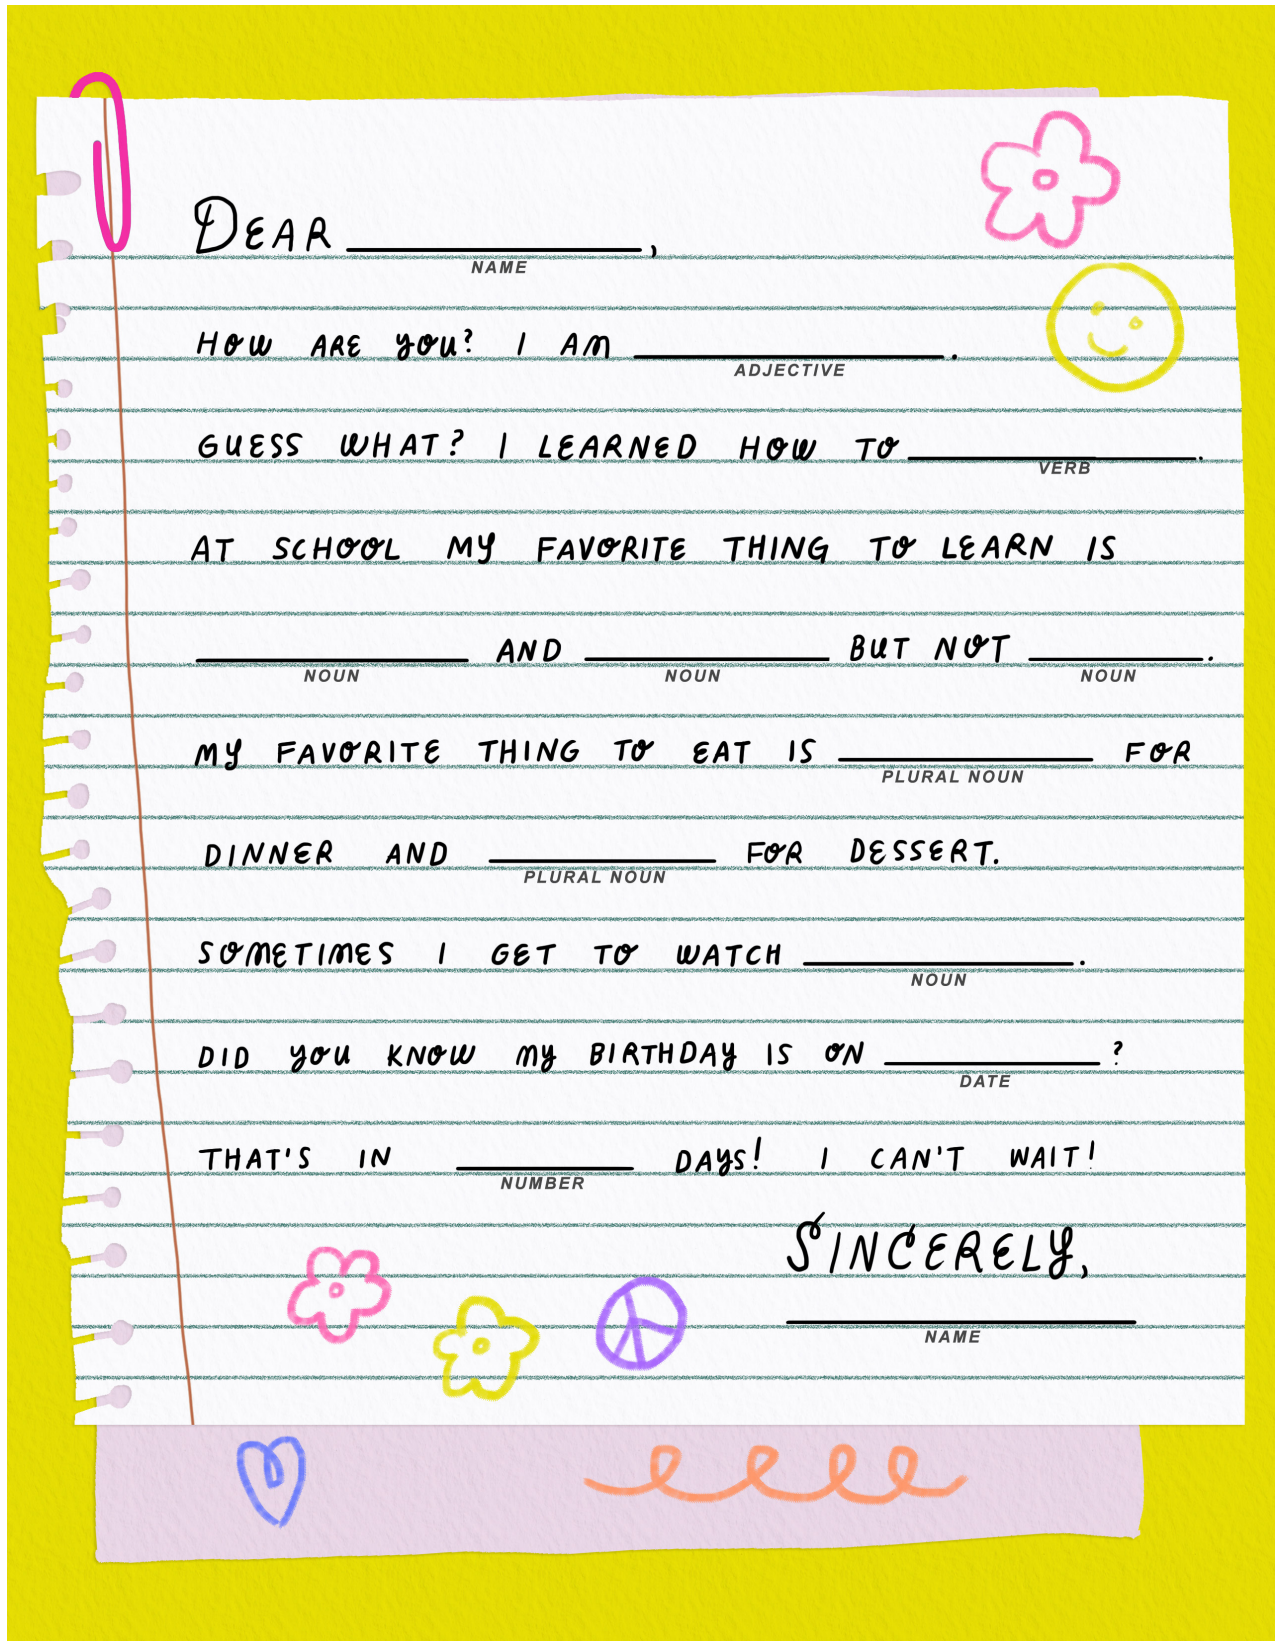 DEAR ____________,
NAME
HOW ARE YOU? I AM ____________.
ADJECTIVE
GUESS WHAT? I LEARNED HOW TO ____________.
VERB
AT SCHOOL MY FAVORITE THING TO LEARN IS
____________ AND ____________ BUT NOT ____________.
NOUN NOUN NOUN
MY FAVORITE THING TO EAT IS ____________ FOR
PLURAL NOUN
DINNER AND ____________ FOR DESSERT.
PLURAL NOUN
SOMETIMES I GET TO WATCH ____________.
NOUN
DID YOU KNOW MY BIRTHDAY IS ON ____________?
DATE
THAT'S IN ____________ DAYS! I CAN'T WAIT!
NUMBER
SINCERELY,
____________
NAME